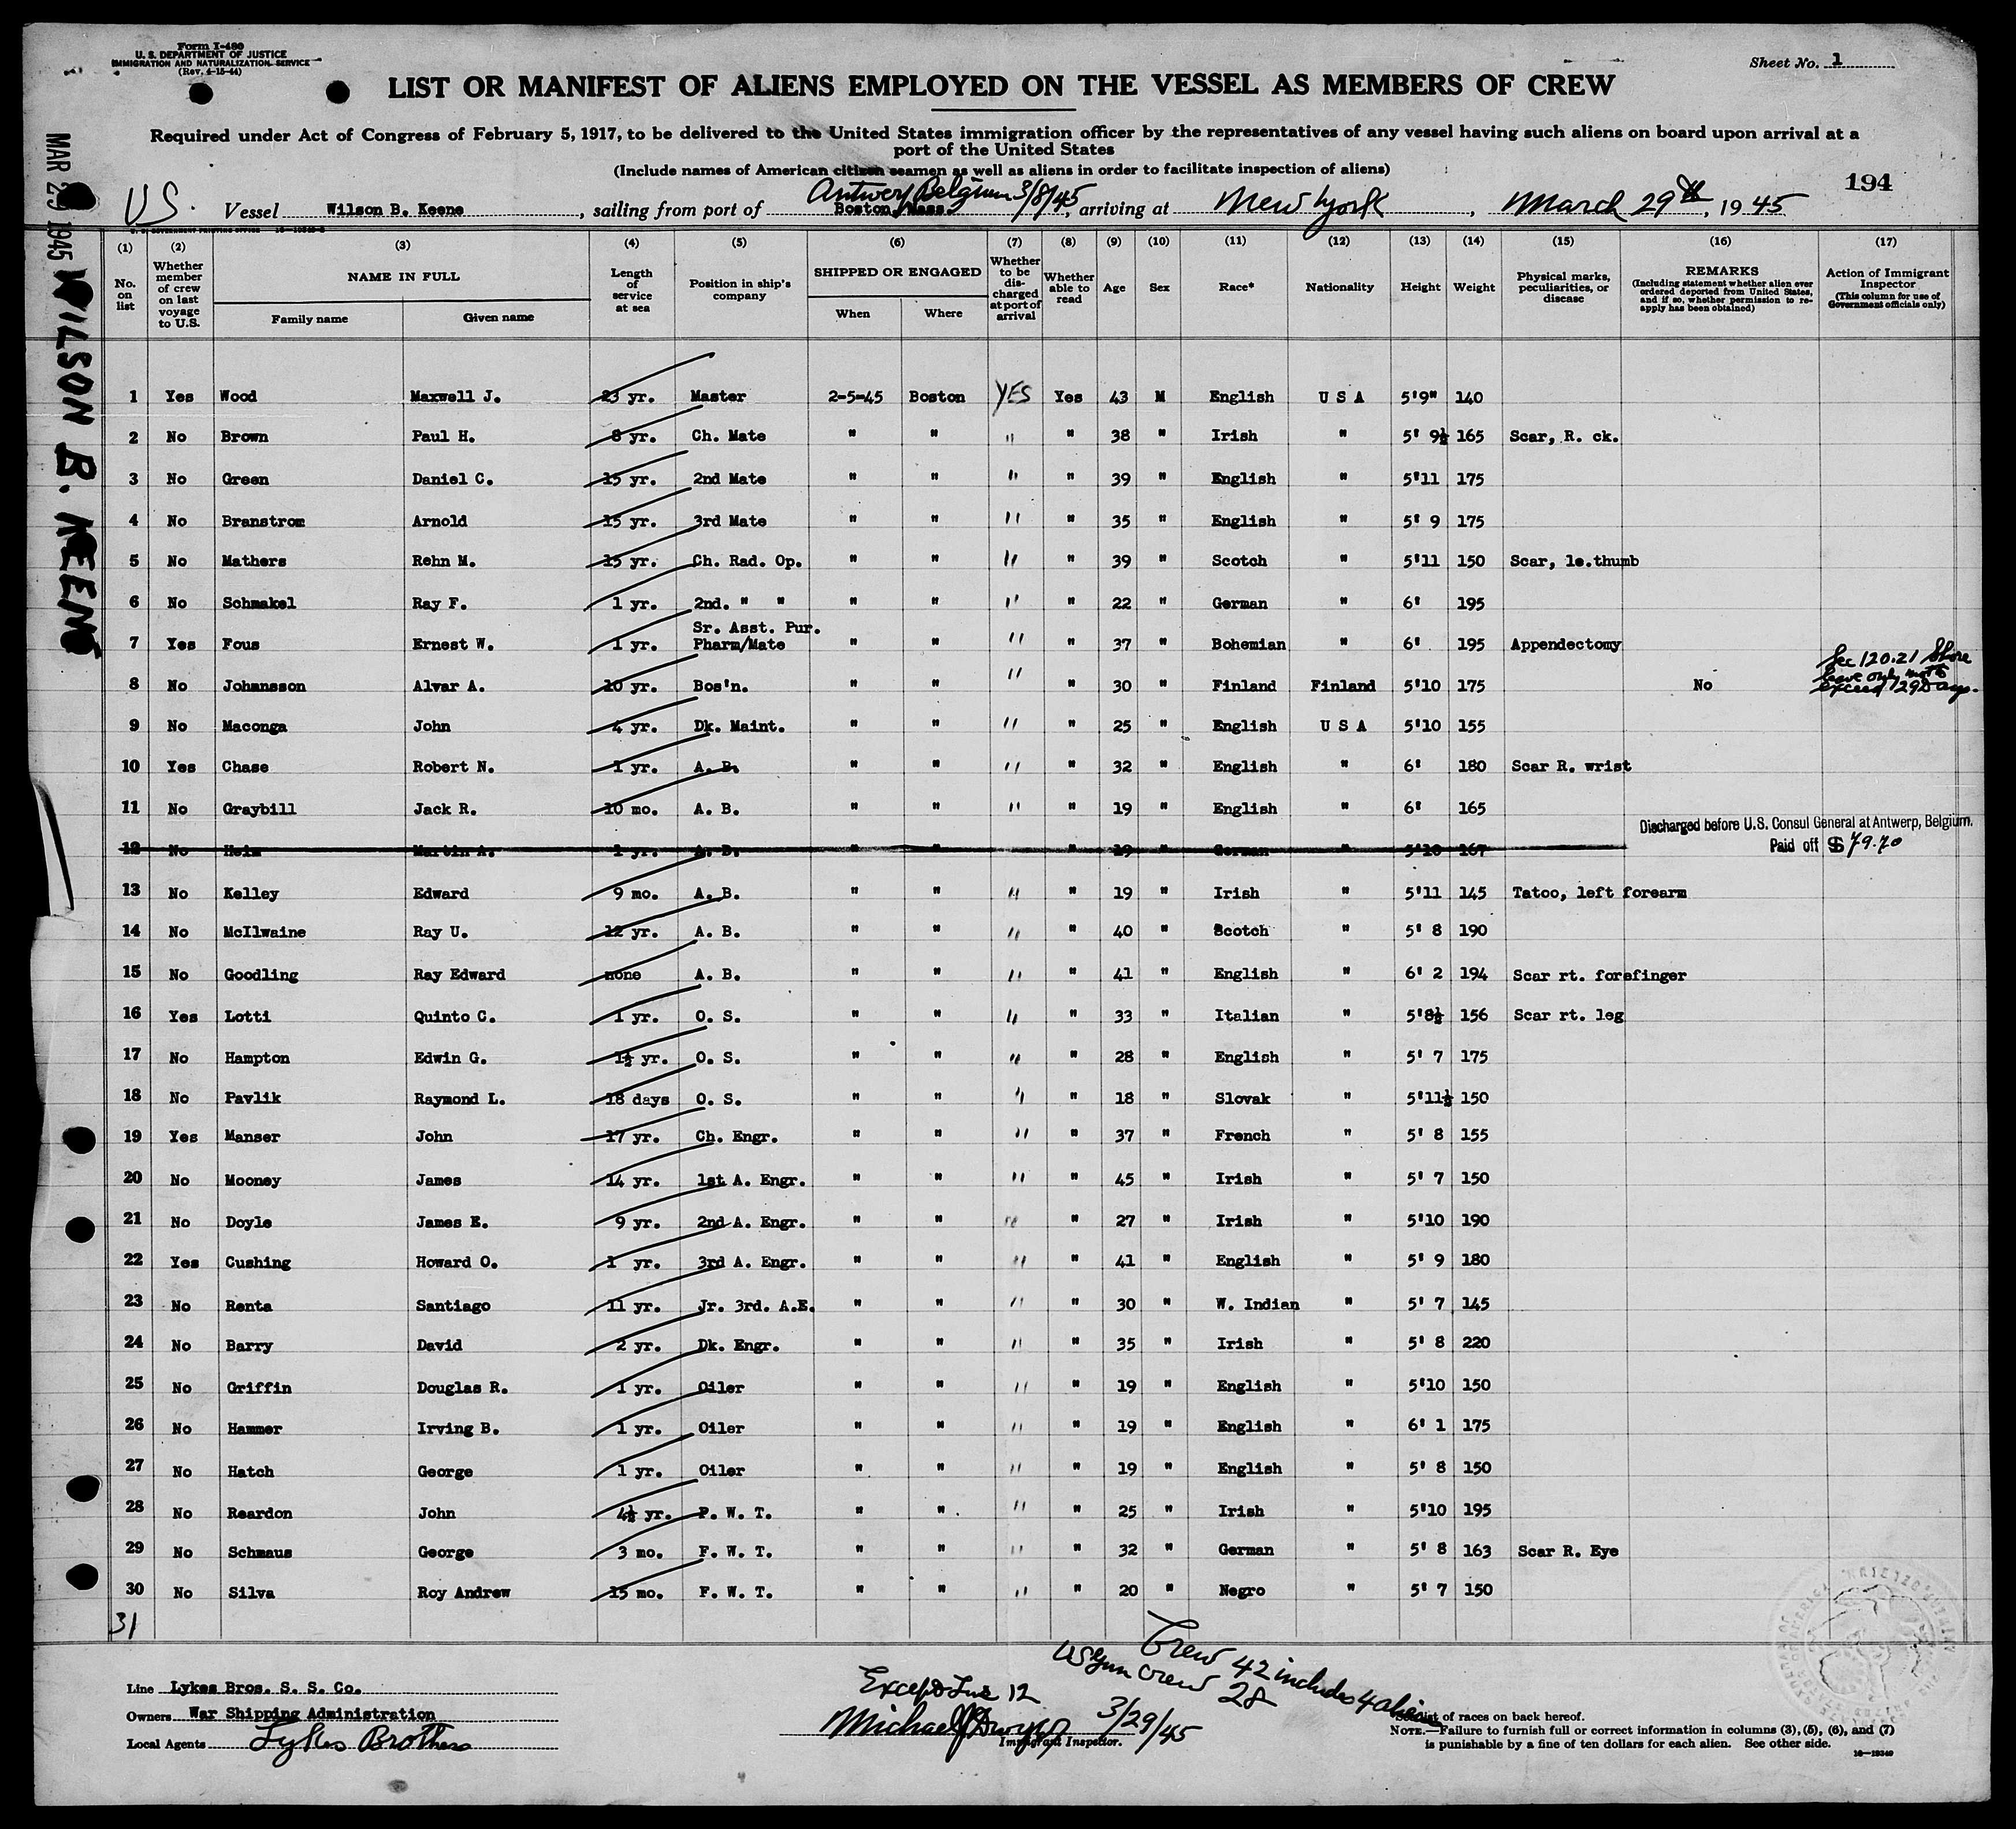 Form I-480
U. S. DEPARTMENT OF JUSTICE
IMMIGRATION AND NATURALIZATION SERVICE
(Rev. 4-15-44)
Sheet No. 1
LIST OR MANIFEST OF ALIENS EMPLOYED ON THE VESSEL AS MEMBERS OF CREW
Required under Act of Congress of February 5, 1917, to be delivered to the United States immigration officer by the representatives of any vessel having such aliens on board upon arrival at a
port of the United States
(Include names of American citizen seamen as well as aliens in order to facilitate inspection of aliens)
194
MAR 29 1945 WILSON B. KEENE
Antwerp Belgium 3/8/45
U.S. Vessel Wilson B. Keene, sailing from port of Boston, Mass., arriving at New York, March 29th, 1945
(1) (2) (3) (4) (5) (6) (7) (8) (9) (10) (11) (12) (13) (14) (15) (16) (17)
No. on list
Whether member of crew on last voyage to U.S.
NAME IN FULL
Family name Given name
Length of service at sea
Position in ship's company
SHIPPED OR ENGAGED
When Where
Whether to be discharged at port of arrival
Whether able to read
Age
Sex
Race*
Nationality
Height
Weight
Physical marks, peculiarities, or disease
REMARKS
(Including statement whether alien ever ordered deported from United States, and if so, whether permission to reapply has been obtained)
Action of Immigrant Inspector
(This column for use of Government officials only)
1 Yes Wood Maxwell J. 23 yr. Master 2-5-45 Boston YES Yes 43 M English U S A 5'9" 140
2 No Brown Paul H. 8 yr. Ch. Mate " " " " 38 " Irish " 5' 9½ 165 Scar, R. ck.
3 No Green Daniel C. 15 yr. 2nd Mate " " " " 39 " English " 5'11 175
4 No Branstrom Arnold 15 yr. 3rd Mate " " " " 35 " English " 5' 9 175
5 No Mathers Rehn M. 15 yr. Ch. Rad. Op. " " " " 39 " Scotch " 5'11 150 Scar, le.thumb
6 No Schmakel Ray F. 1 yr. 2nd. " " " " " " 22 " German " 6' 195
Sr. Asst. Pur.
7 Yes Fous Ernest W. 1 yr. Pharm/Mate " " " " 37 " Bohemian " 6' 195 Appendectomy
8 No Johansson Alvar A. 10 yr. Bos'n. " " " " 30 " Finland Finland 5'10 175 No Sec 120.21 Shore leave only not to exceed 29 Days.
9 No Maconga John 4 yr. Dk. Maint. " " " " 25 " English U S A 5'10 155
10 Yes Chase Robert N. 1 yr. A. B. " " " " 32 " English " 6' 180 Scar R. wrist
11 No Graybill Jack R. 10 mo. A. B. " " " " 19 " English " 6' 165
Discharged before U.S. Consul General at Antwerp, Belgium.
12 No Heim Martin A. 1 yr. A. B. " " " 19 " German " 5'10 167 Paid off $ 79.70
13 No Kelley Edward 9 mo. A. B. " " " " 19 " Irish " 5'11 145 Tatoo, left forearm
14 No McIlwaine Ray U. 12 yr. A. B. " " " " 40 " Scotch " 5' 8 190
15 No Goodling Ray Edward none A. B. " " " " 41 " English " 6' 2 194 Scar rt. forefinger
16 Yes Lotti Quinto C. 1 yr. O. S. " " " " 33 " Italian " 5'8½ 156 Scar rt. leg
17 No Hampton Edwin G. 1½ yr. O. S. " " " " 28 " English " 5' 7 175
18 No Pavlik Raymond L. 18 days O. S. " " " " 18 " Slovak " 5'11½ 150
19 Yes Manser John 17 yr. Ch. Engr. " " " " 37 " French " 5' 8 155
20 No Mooney James 14 yr. 1st A. Engr. " " " " 45 " Irish " 5' 7 150
21 No Doyle James E. 9 yr. 2nd A. Engr. " " " " 27 " Irish " 5'10 190
22 Yes Cushing Howard O. 1 yr. 3rd A. Engr. " " " " 41 " English " 5' 9 180
23 No Renta Santiago 11 yr. Jr. 3rd. A.E. " " " " 30 " W. Indian " 5' 7 145
24 No Barry David 2 yr. Dk. Engr. " " " " 35 " Irish " 5' 8 220
25 No Griffin Douglas R. 1 yr. Oiler " " " " 19 " English " 5'10 150
26 No Hammer Irving B. 1 yr. Oiler " " " " 19 " English " 6' 1 175
27 No Hatch George 1 yr. Oiler " " " " 19 " English " 5' 8 150
28 No Reardon John 4½ yr. F. W. T. " " " " 25 " Irish " 5'10 195
29 No Schmaus George 3 mo. F. W. T. " " " " 32 " German " 5' 8 163 Scar R. Eye
30 No Silva Roy Andrew 15 mo. F. W. T. " " " " 20 " Negro " 5' 7 150
31
Crew 42 includes 4 aliens
US Gun Crew 28
Line Lykes Bros. S. S. Co.
Owners War Shipping Administration
Local Agents Lykes Brothers
Except Line 12
Michael J. Dwyer 3/29/45
Immigrant Inspector.
*See list of races on back hereof.
NOTE.—Failure to furnish full or correct information in columns (3), (5), (6), and (7)
is punishable by a fine of ten dollars for each alien. See other side.